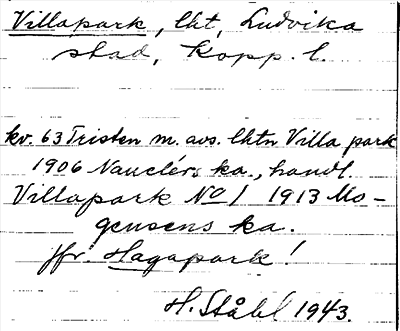 Villapark, lht, Ludvika
stad, Kopp. l.
kv. 63 Tristen m. avs. lhtn Villa park
1906 Nauclérs ka., handl.
Villapark No 1 1913 Mo-
gensens ka.
jfr. Hagapark!
H. Ståhl 1943.